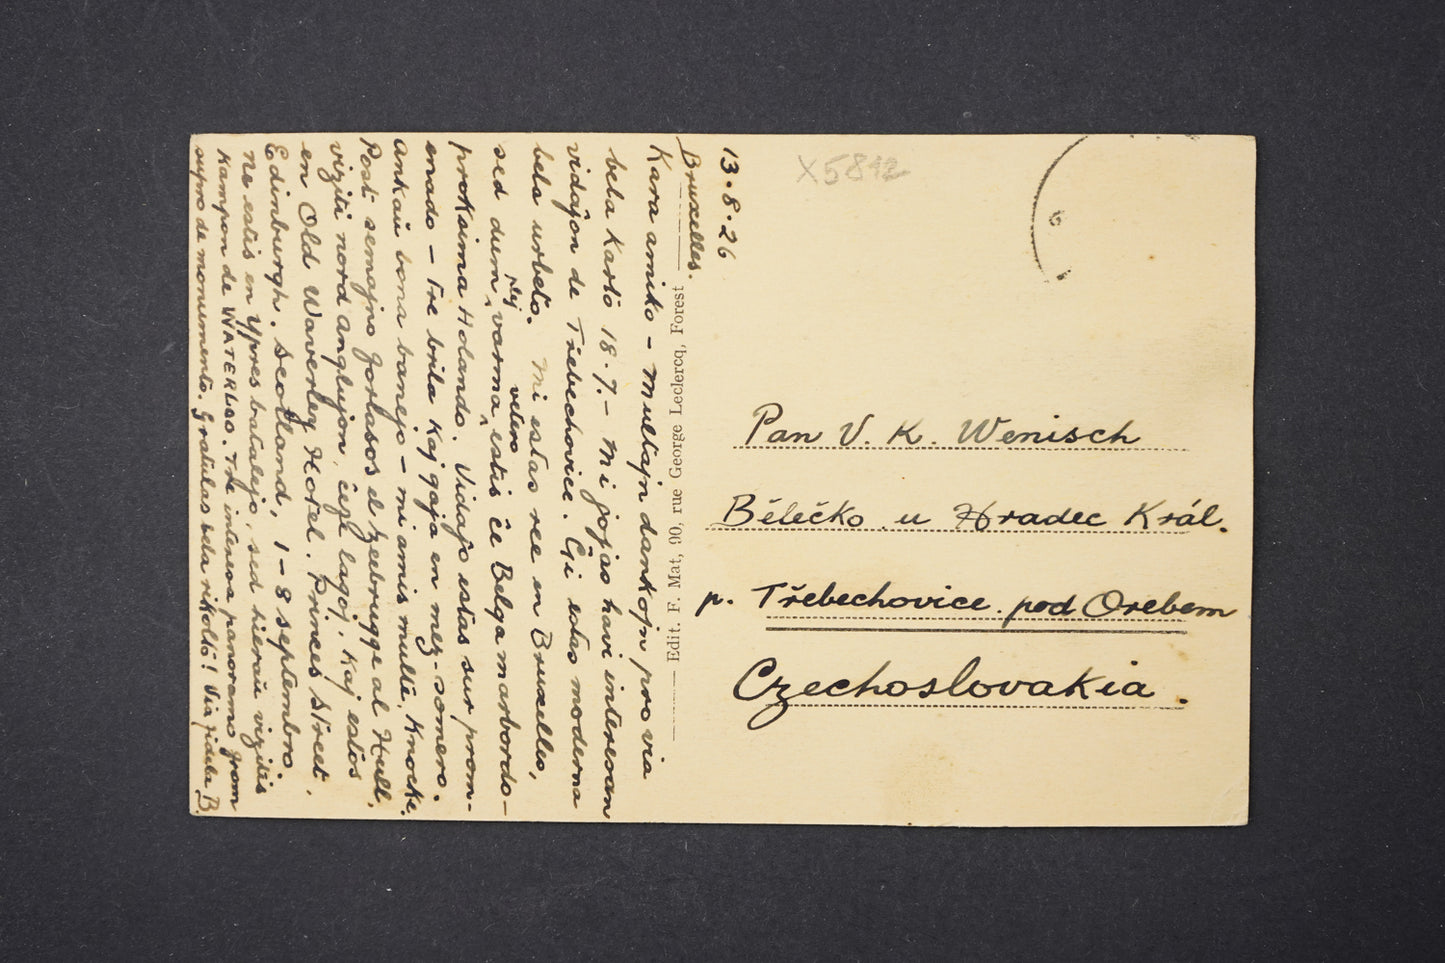 X5812
13.8.26
Bruxelles.
Kara amiko – Multajn dankojn pro via
bela karto 18.7.– Mi ĝojas havi interesan
vidaĵon de Třebechovice. Ĝi estas moderna
bela urbeto. Mi estas ree en Bruxelles,
sed dum plej varma vetero estis ĉe Belga marbordo –
proksima Holando. Vidaĵo estas sur prom-
enado – tre brila kaj gaja en mez-somero.
Ankaŭ bona banejo – mi amis multe, Knocke.
Post semajno forlasos el Zeebrugge al Hull,
viziti nord anglujon, ĉefe lagoj. Kaj estos
en Old Waverley Hotel. Princes Street,
Edinburgh. Scotland, 1–8 septembro.
Ne estis en Ypres batalejo, sed hieraŭ vizitis
kampon de WATERLOO. Tre interesa panoramo from
supro de monumento. Gratulas bela rikolto! Via fidela B.
Edit. F. Mat, 90, rue George Leclercq, Forest
Pan V. K. Wenisch
Bělečko u Hradec Král.
p. Třebechovice pod Orebem
Czechoslovakia.